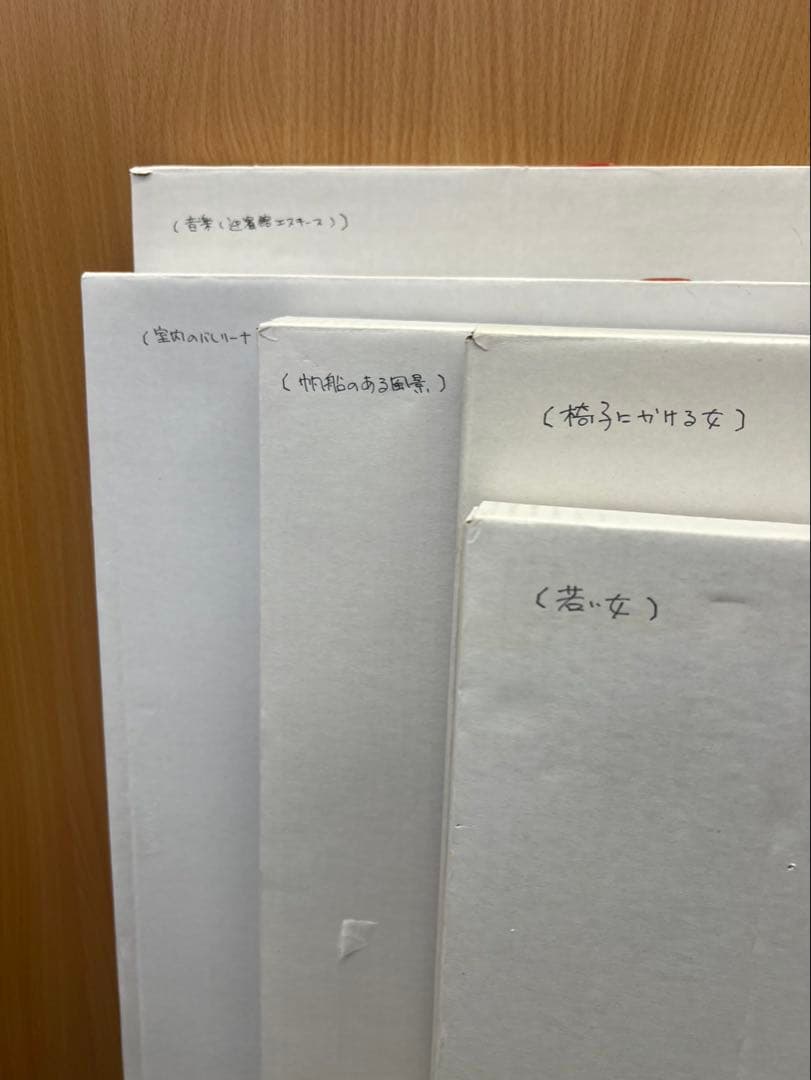 (音楽(迎賓館エスキース))
(室内のバレリーナ
(帆船のある風景)
(椅子にかける女)
(若い女)